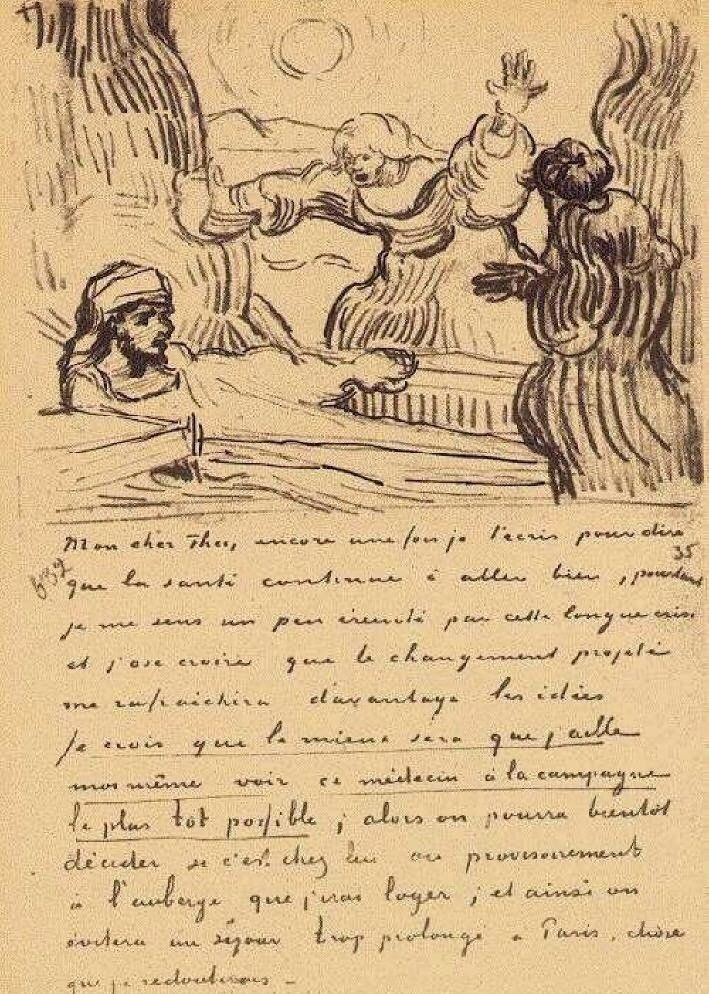 Mon cher Theo, encore une fois je t'ecris pour dire
35
632
que la santé continue à aller bien, pourtant
je me sens un peu éreinté par cette longue crise
et j'ose croire que le changement projeté
me rafraichira davantage les idées
Je crois que le mieux sera que j'aille
moi même voir ce médecin à la campagne
le plus tôt possible ; alors on pourra bientôt
décider si c'est chez lui ou provisoirement
à l'auberge que j'irai loger ; et ainsi on
évitera un séjour trop prolongé à Paris, chose
que je redouterais –